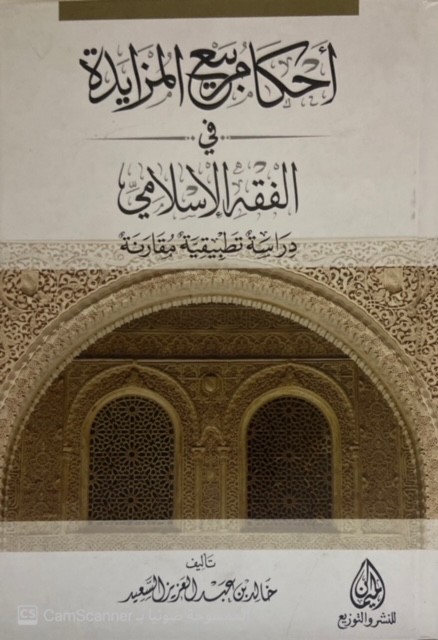 أحكام بيع المزايدة
في
الفقه الإسلامي
دراسة تطبيقية مقارنة
تأليف
خالد بن عبد العزيز السعيد
الميمان
للنشر والتوزيع
CS CamScanner